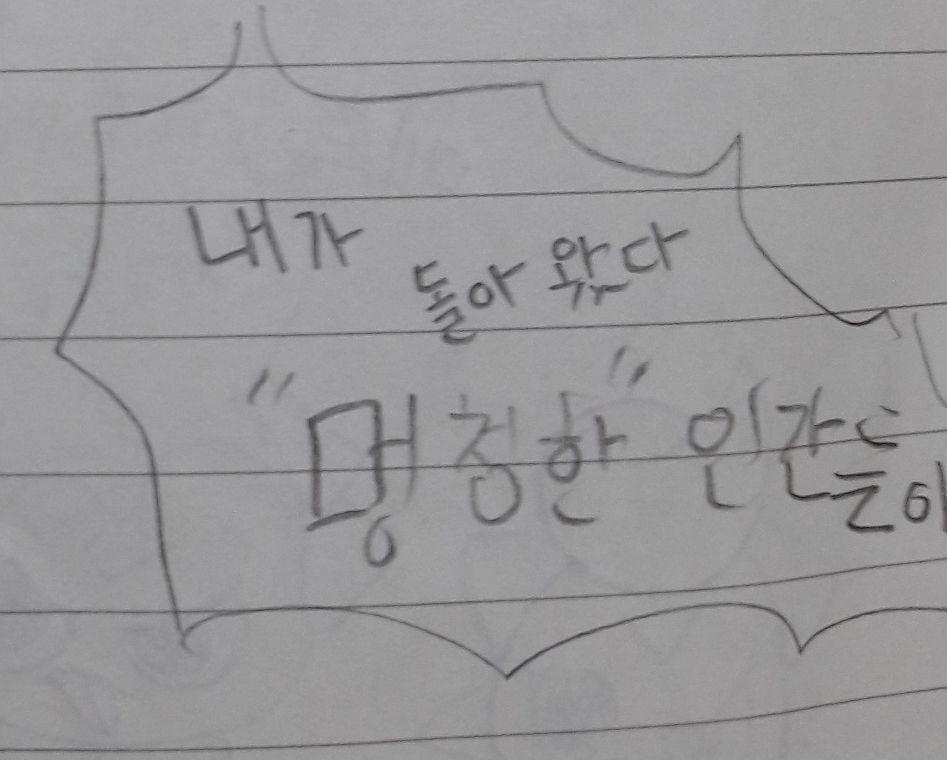 내가 돌아 왔다
"멍청한" 인간들아